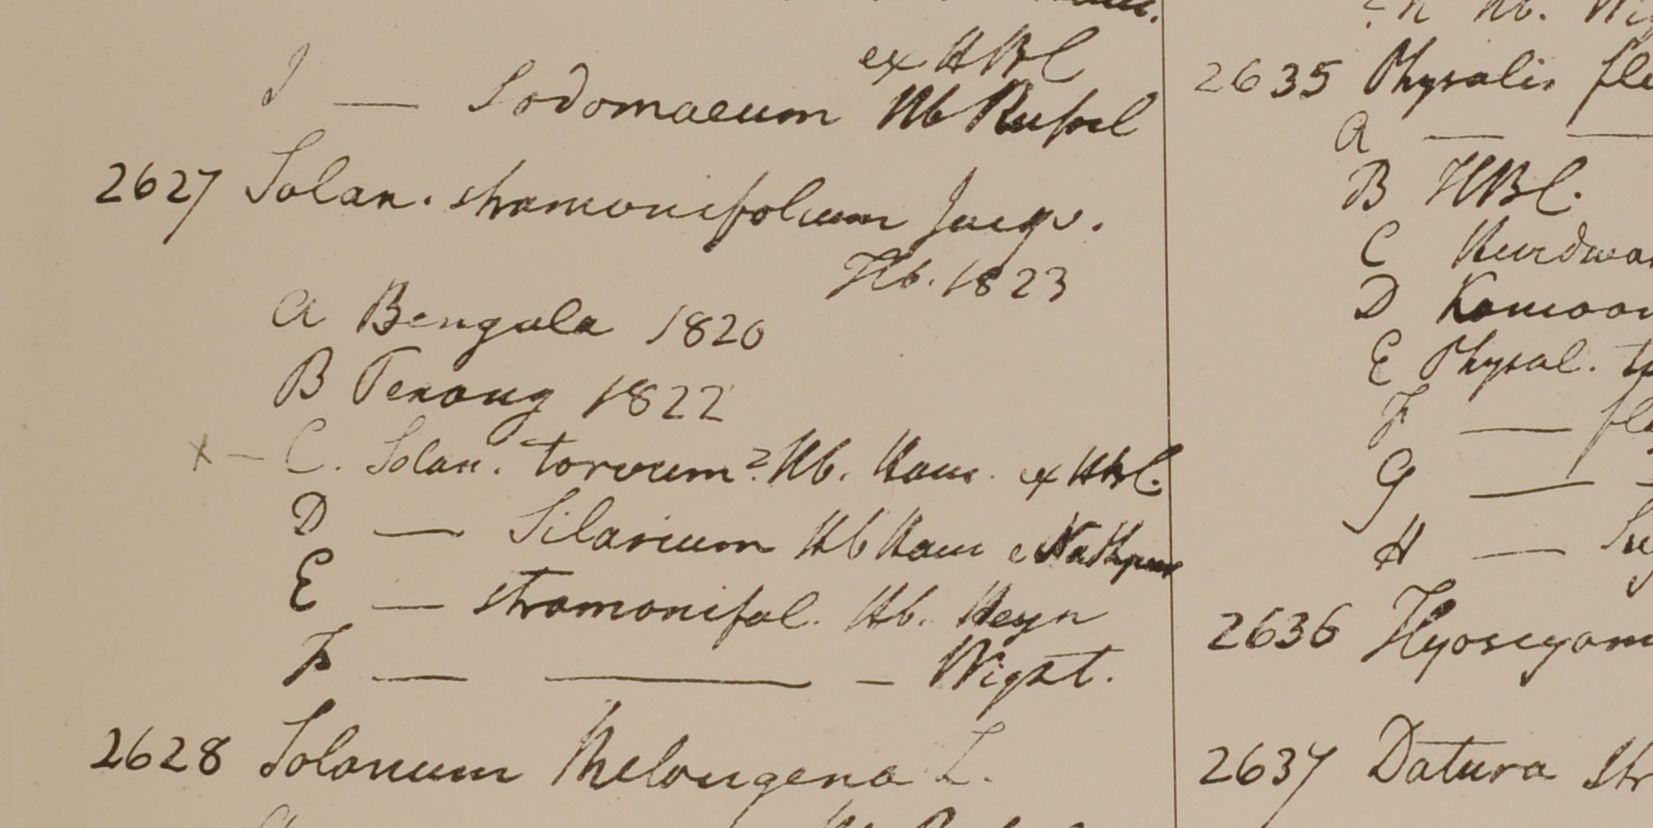 ex HBC
I — Sodomaeum Hb Russel
2627 Solan. stramonifolium Jacq.
Hb. 1823
A Bengala 1820
B Penang 1822
x — C. Solan. torvum? Hb. Ham. ex HBC.
D — Silarium Hb Ham e Nathpur
E — stramonifol. Hb. Heyn
F — — — Wight.
2628 Solanum Melongena L.
2635 Physalis fle
A — —
B HBC.
C Hurdwa
D Kamoon
E Physal.
F — fl
G — —
H —
2636 Hyoscyam
2637 Datura Str